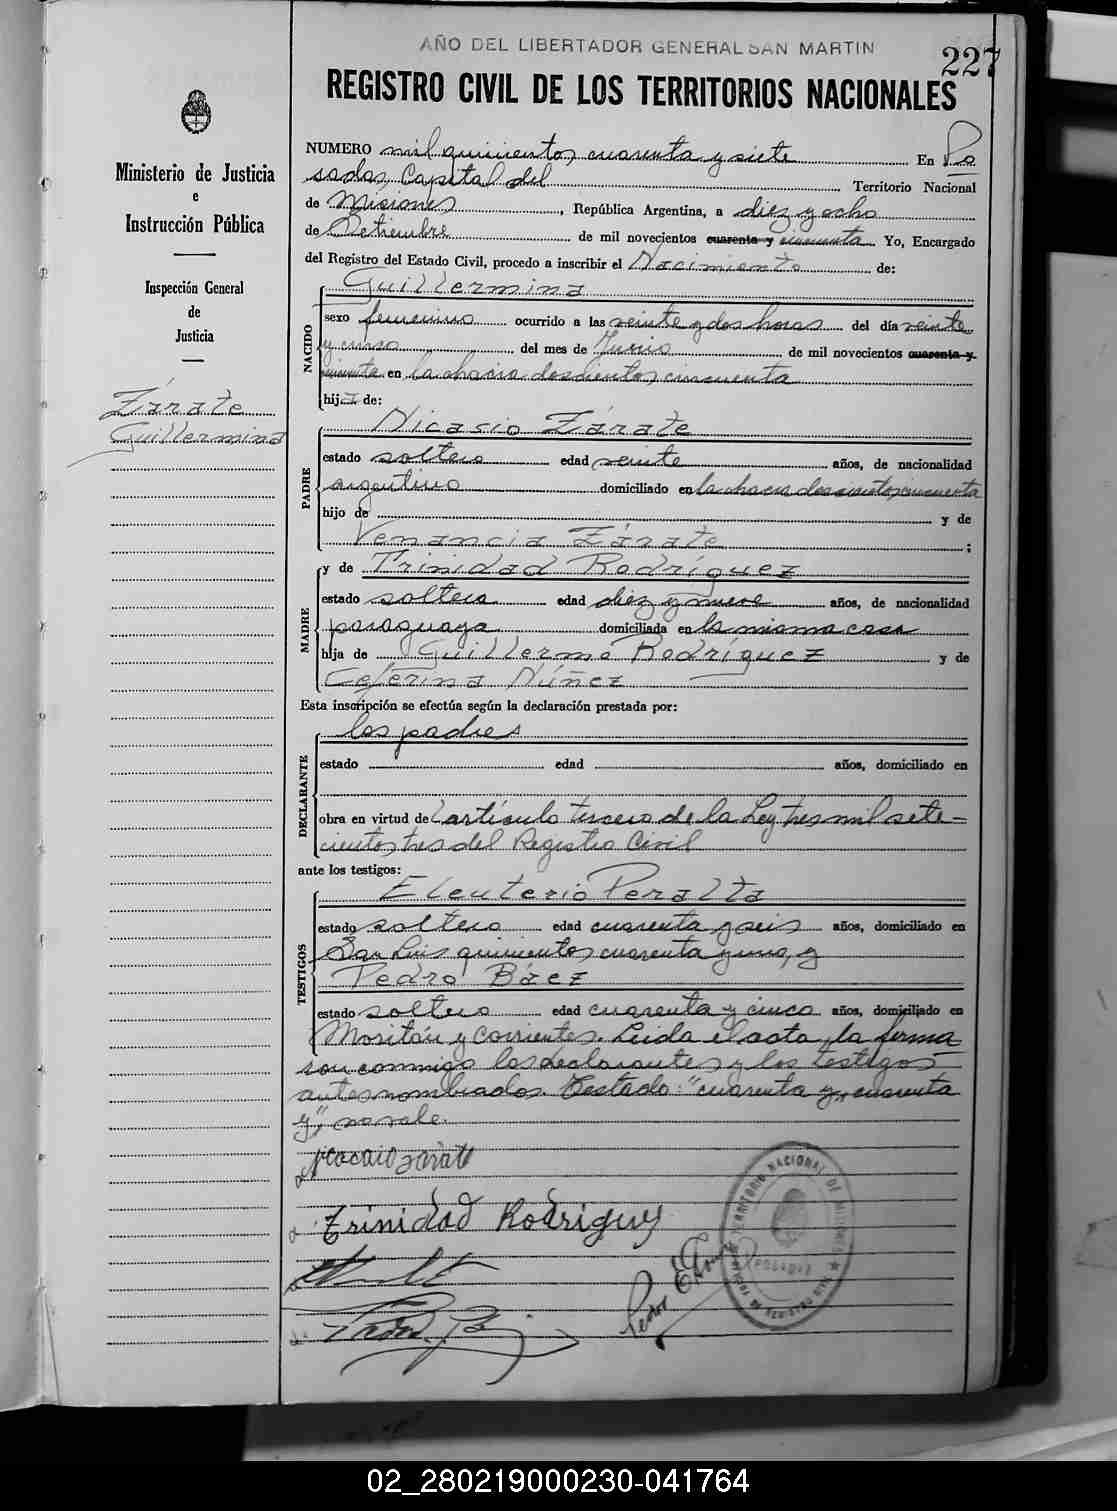 AÑO DEL LIBERTADOR GENERAL SAN MARTIN
227
REGISTRO CIVIL DE LOS TERRITORIOS NACIONALES
Ministerio de Justicia
e
Instrucción Pública
Inspección General
de
Justicia
Zárate
Guillermina
NUMERO mil quinientos cuarenta y siete En Po
sadas, Capital del Territorio Nacional
de Misiones, República Argentina, a diez y ocho
de Setiembre de mil novecientos cuarenta y cincuenta Yo, Encargado
del Registro del Estado Civil, procedo a inscribir el Nacimiento de:
NACIDO
Guillermina
sexo femenino ocurrido a las veinte y dos horas del día veinte
y cinco del mes de Junio de mil novecientos cuarenta y
cincuenta en la chacra doscientos cincuenta
hija de:
PADRE
Nicasio Zárate
estado soltero edad veinte años, de nacionalidad
argentino domiciliado en la chacra doscientos cincuenta
hijo de y de
Venancia Zárate ;
MADRE
y de Trinidad Rodríguez
estado soltera edad diez y nueve años, de nacionalidad
paraguaya domiciliada en la misma casa
hija de Guillermo Rodríguez y de
Ceferina Núñez
Esta inscripción se efectúa según la declaración prestada por:
DECLARANTE
los padres
estado edad años, domiciliado en
obra en virtud del artículo tercero de la Ley tres mil sete-
cientos tres del Registro Civil
ante los testigos:
TESTIGOS
Eleuterio Peralta
estado soltero edad cuarenta y seis años, domiciliado en
San Luis quinientos cuarenta y uno, y
Pedro Báez
estado soltero edad cuarenta y cinco años, domiciliado en
Moritán y Corrientes. Leida el acta, la firma
son conmigo los declarantes y los testigos
antes nombrados. Testado: "cuarenta y, cuarenta
y", no vale.
Nicacio zarate
Trinidad Rodriguez
TERRITORIO NACIONAL DE MISIONES
POSADAS
02_280219000230-041764